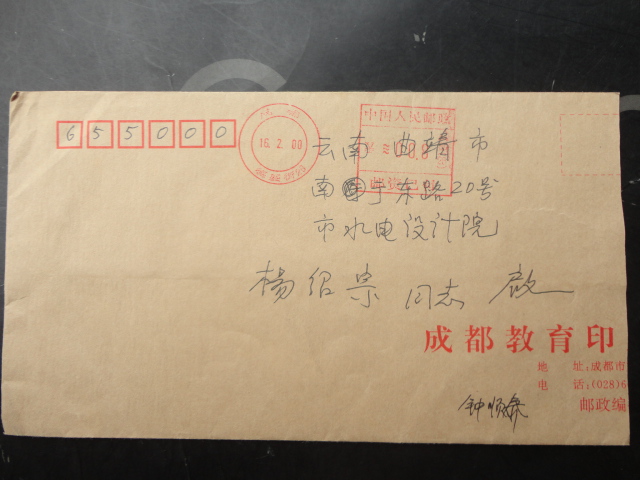 655000
16.2.00
中国人民邮政
云南曲靖市
南宁东路20号
市水电设计院
楊绍宗 同志 啟
成都教育印
地 址:成都市
电 话:(028)6
邮政编